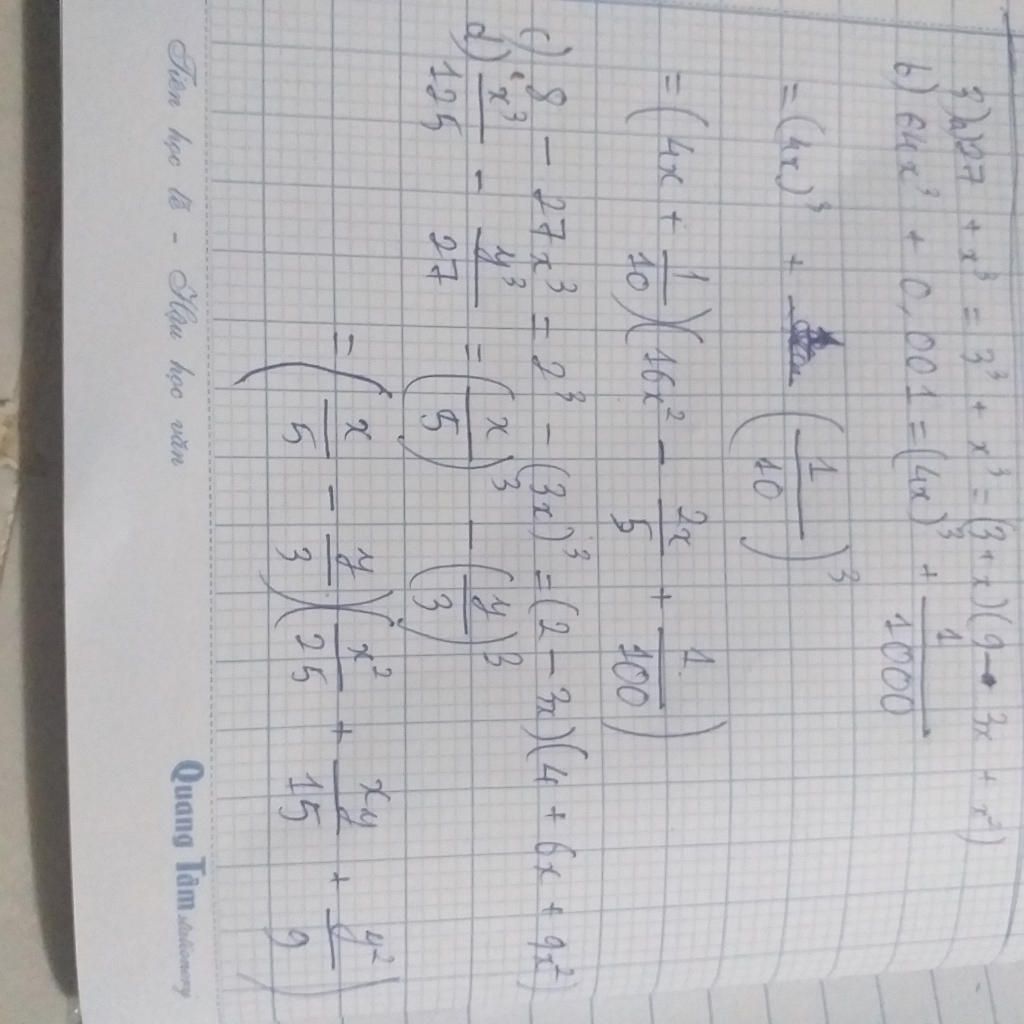 3) a) 27 + x³ = 3³ + x³ = (3 + x)(9 - 3x + x²)
b) 64x³ + 0,001 = (4x)³ + 1/1000
= (4x)³ + (1/10)³
= (4x + 1/10)(16x² - 2x/5 + 1/100)
c) 8 - 27x³ = 2³ - (3x)³ = (2 - 3x)(4 + 6x + 9x²)
d) x³/125 - y³/27 = (x/5)³ - (y/3)³
= (x/5 - y/3)(x²/25 + xy/15 + y²/9)
Tiên học lễ - Hậu học văn
Quang Tâm stationery